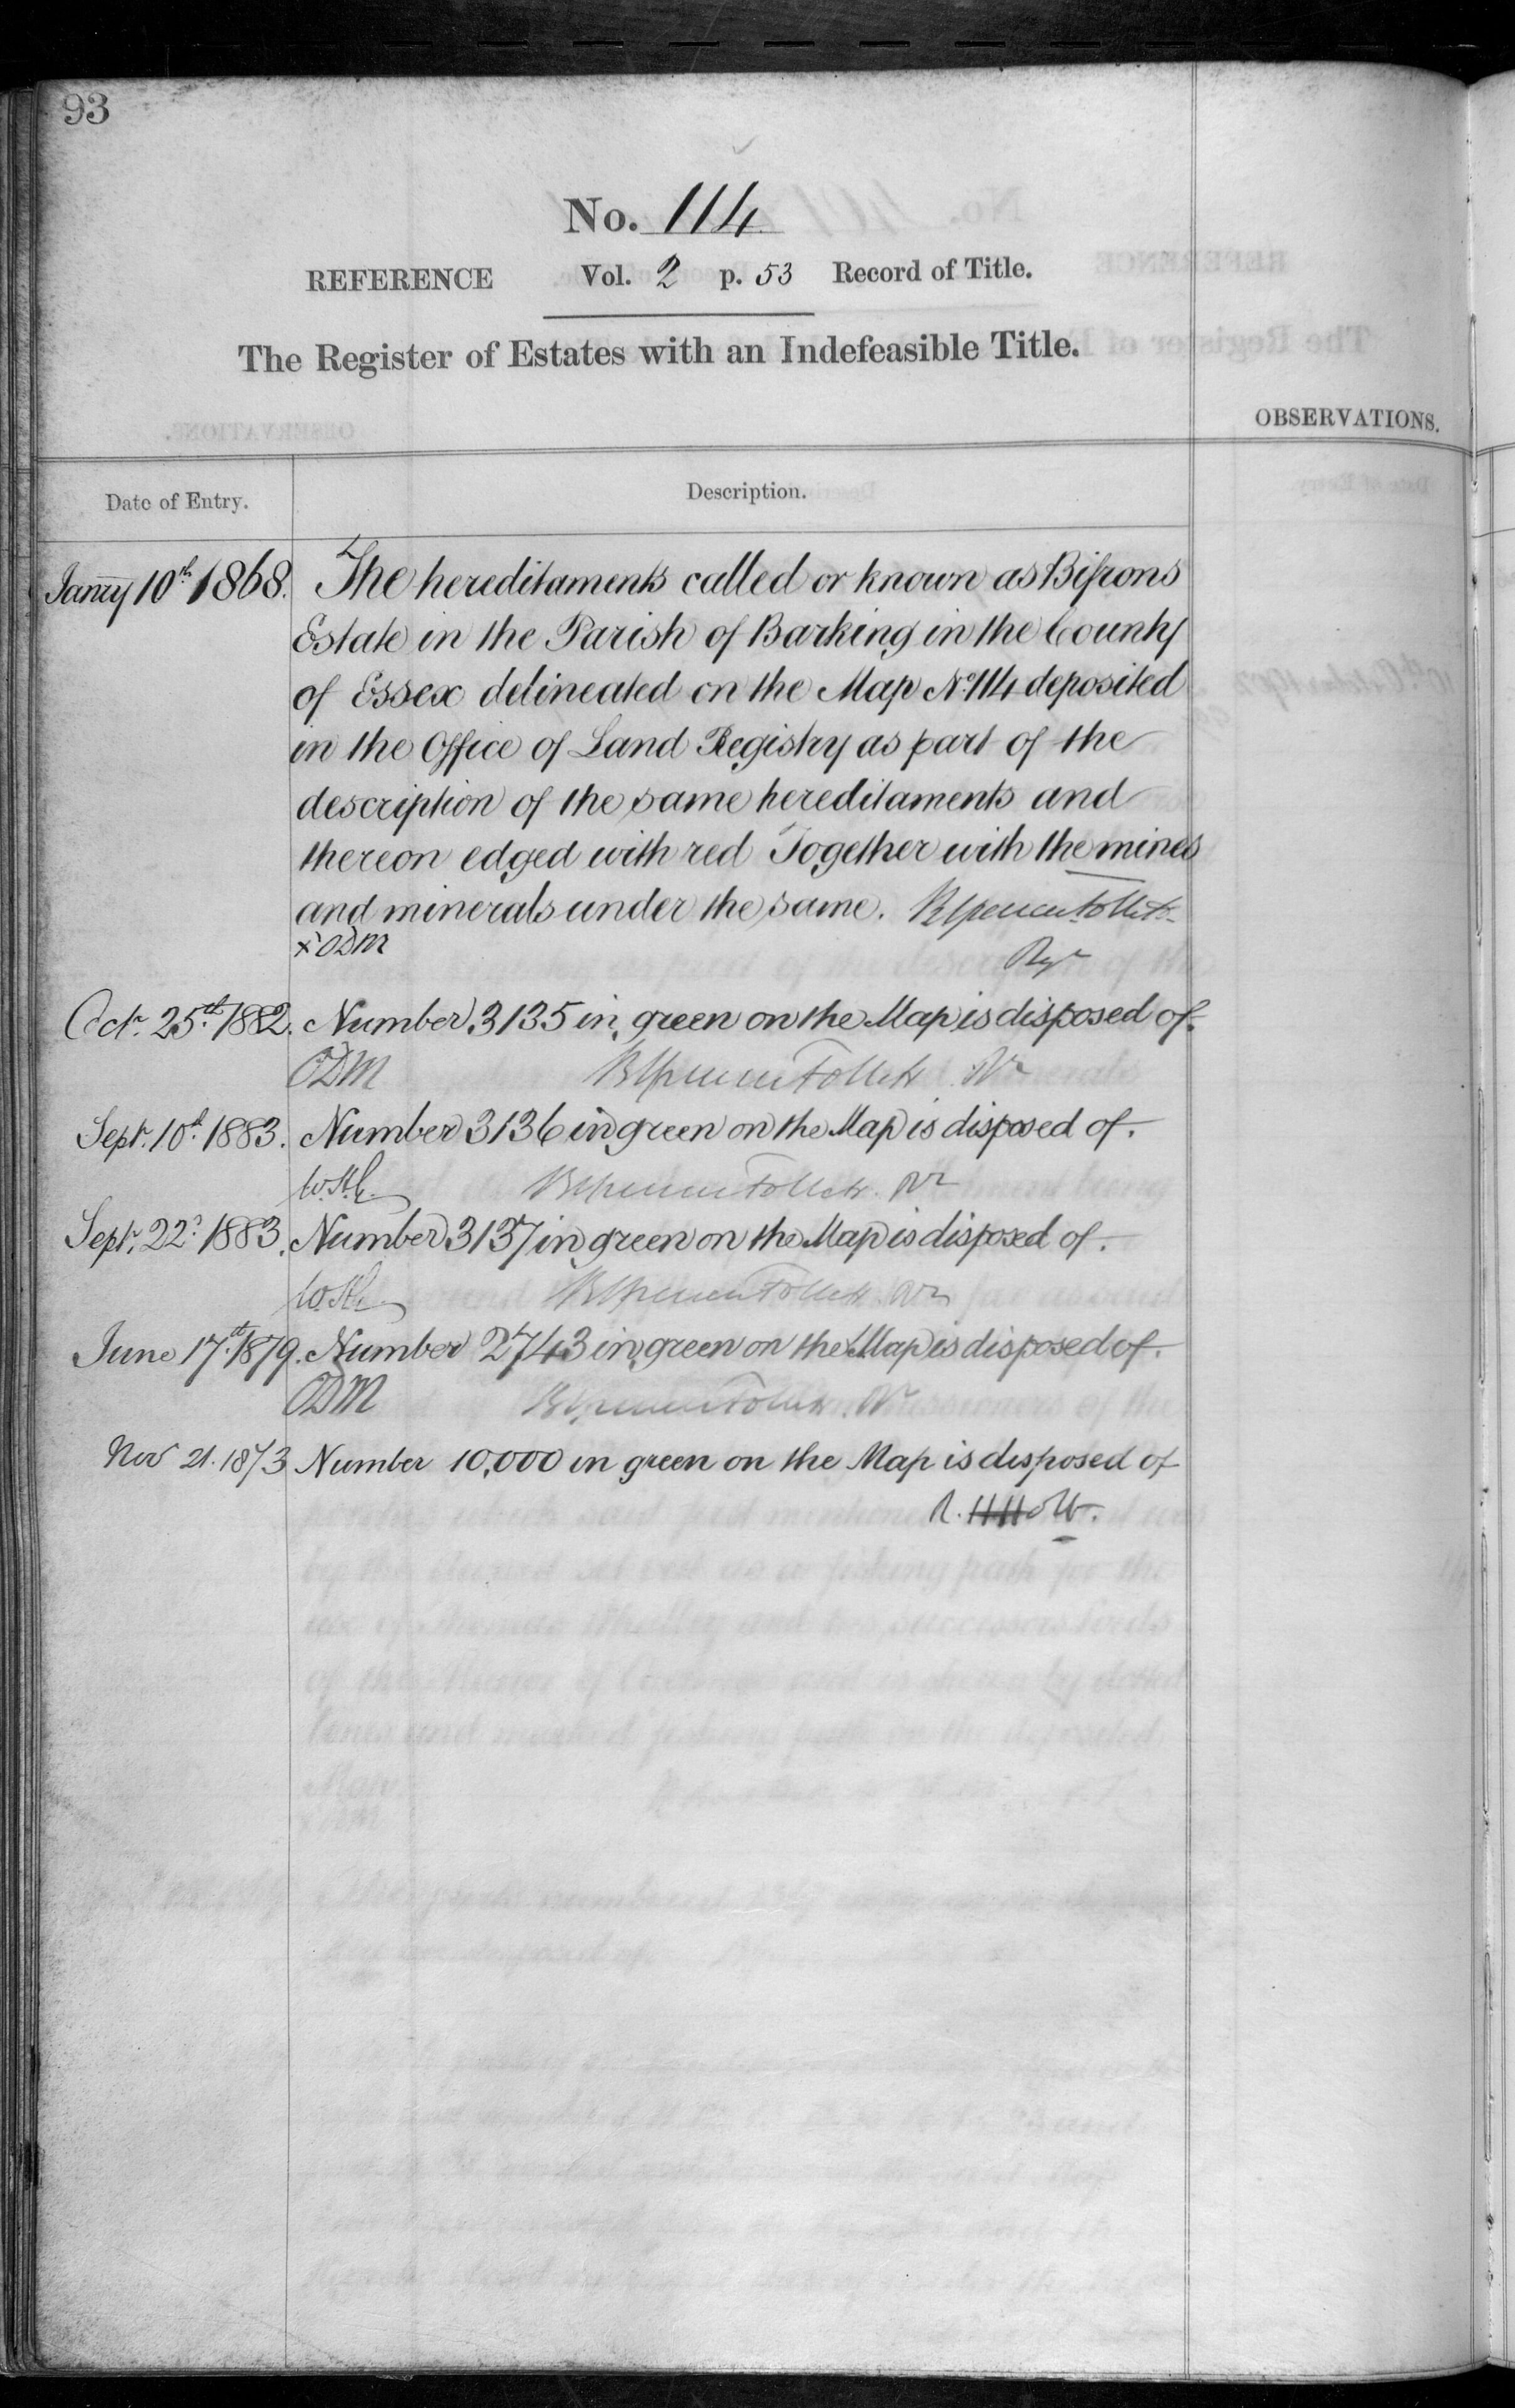 93
No. 114
REFERENCE Vol. 2 p. 53 Record of Title.
The Register of Estates with an Indefeasible Title.
OBSERVATIONS.
Date of Entry. Description.
Janry 10th 1868. The hereditaments called or known as Bifrons
Estate in the Parish of Barking in the County
of Essex delineated on the Map No. 114 deposited
in the Office of Land Registry as part of the
description of the same hereditaments and
thereon edged with red Together with the mines
and minerals under the same. Brent Spencer Follett
x ODM Regr
Octr. 25th 1882. Number 3135 in green on the Map is disposed of.
ODM
Sept. 10th 1883. Number 3136 in green on the Map is disposed of.
Sept. 22d 1883. Number 3137 in green on the Map is disposed of.
June 17th 1879. Number 2743 in green on the Map is disposed of.
ODM
Nov 21. 1873 Number 10,000 in green on the Map is disposed of